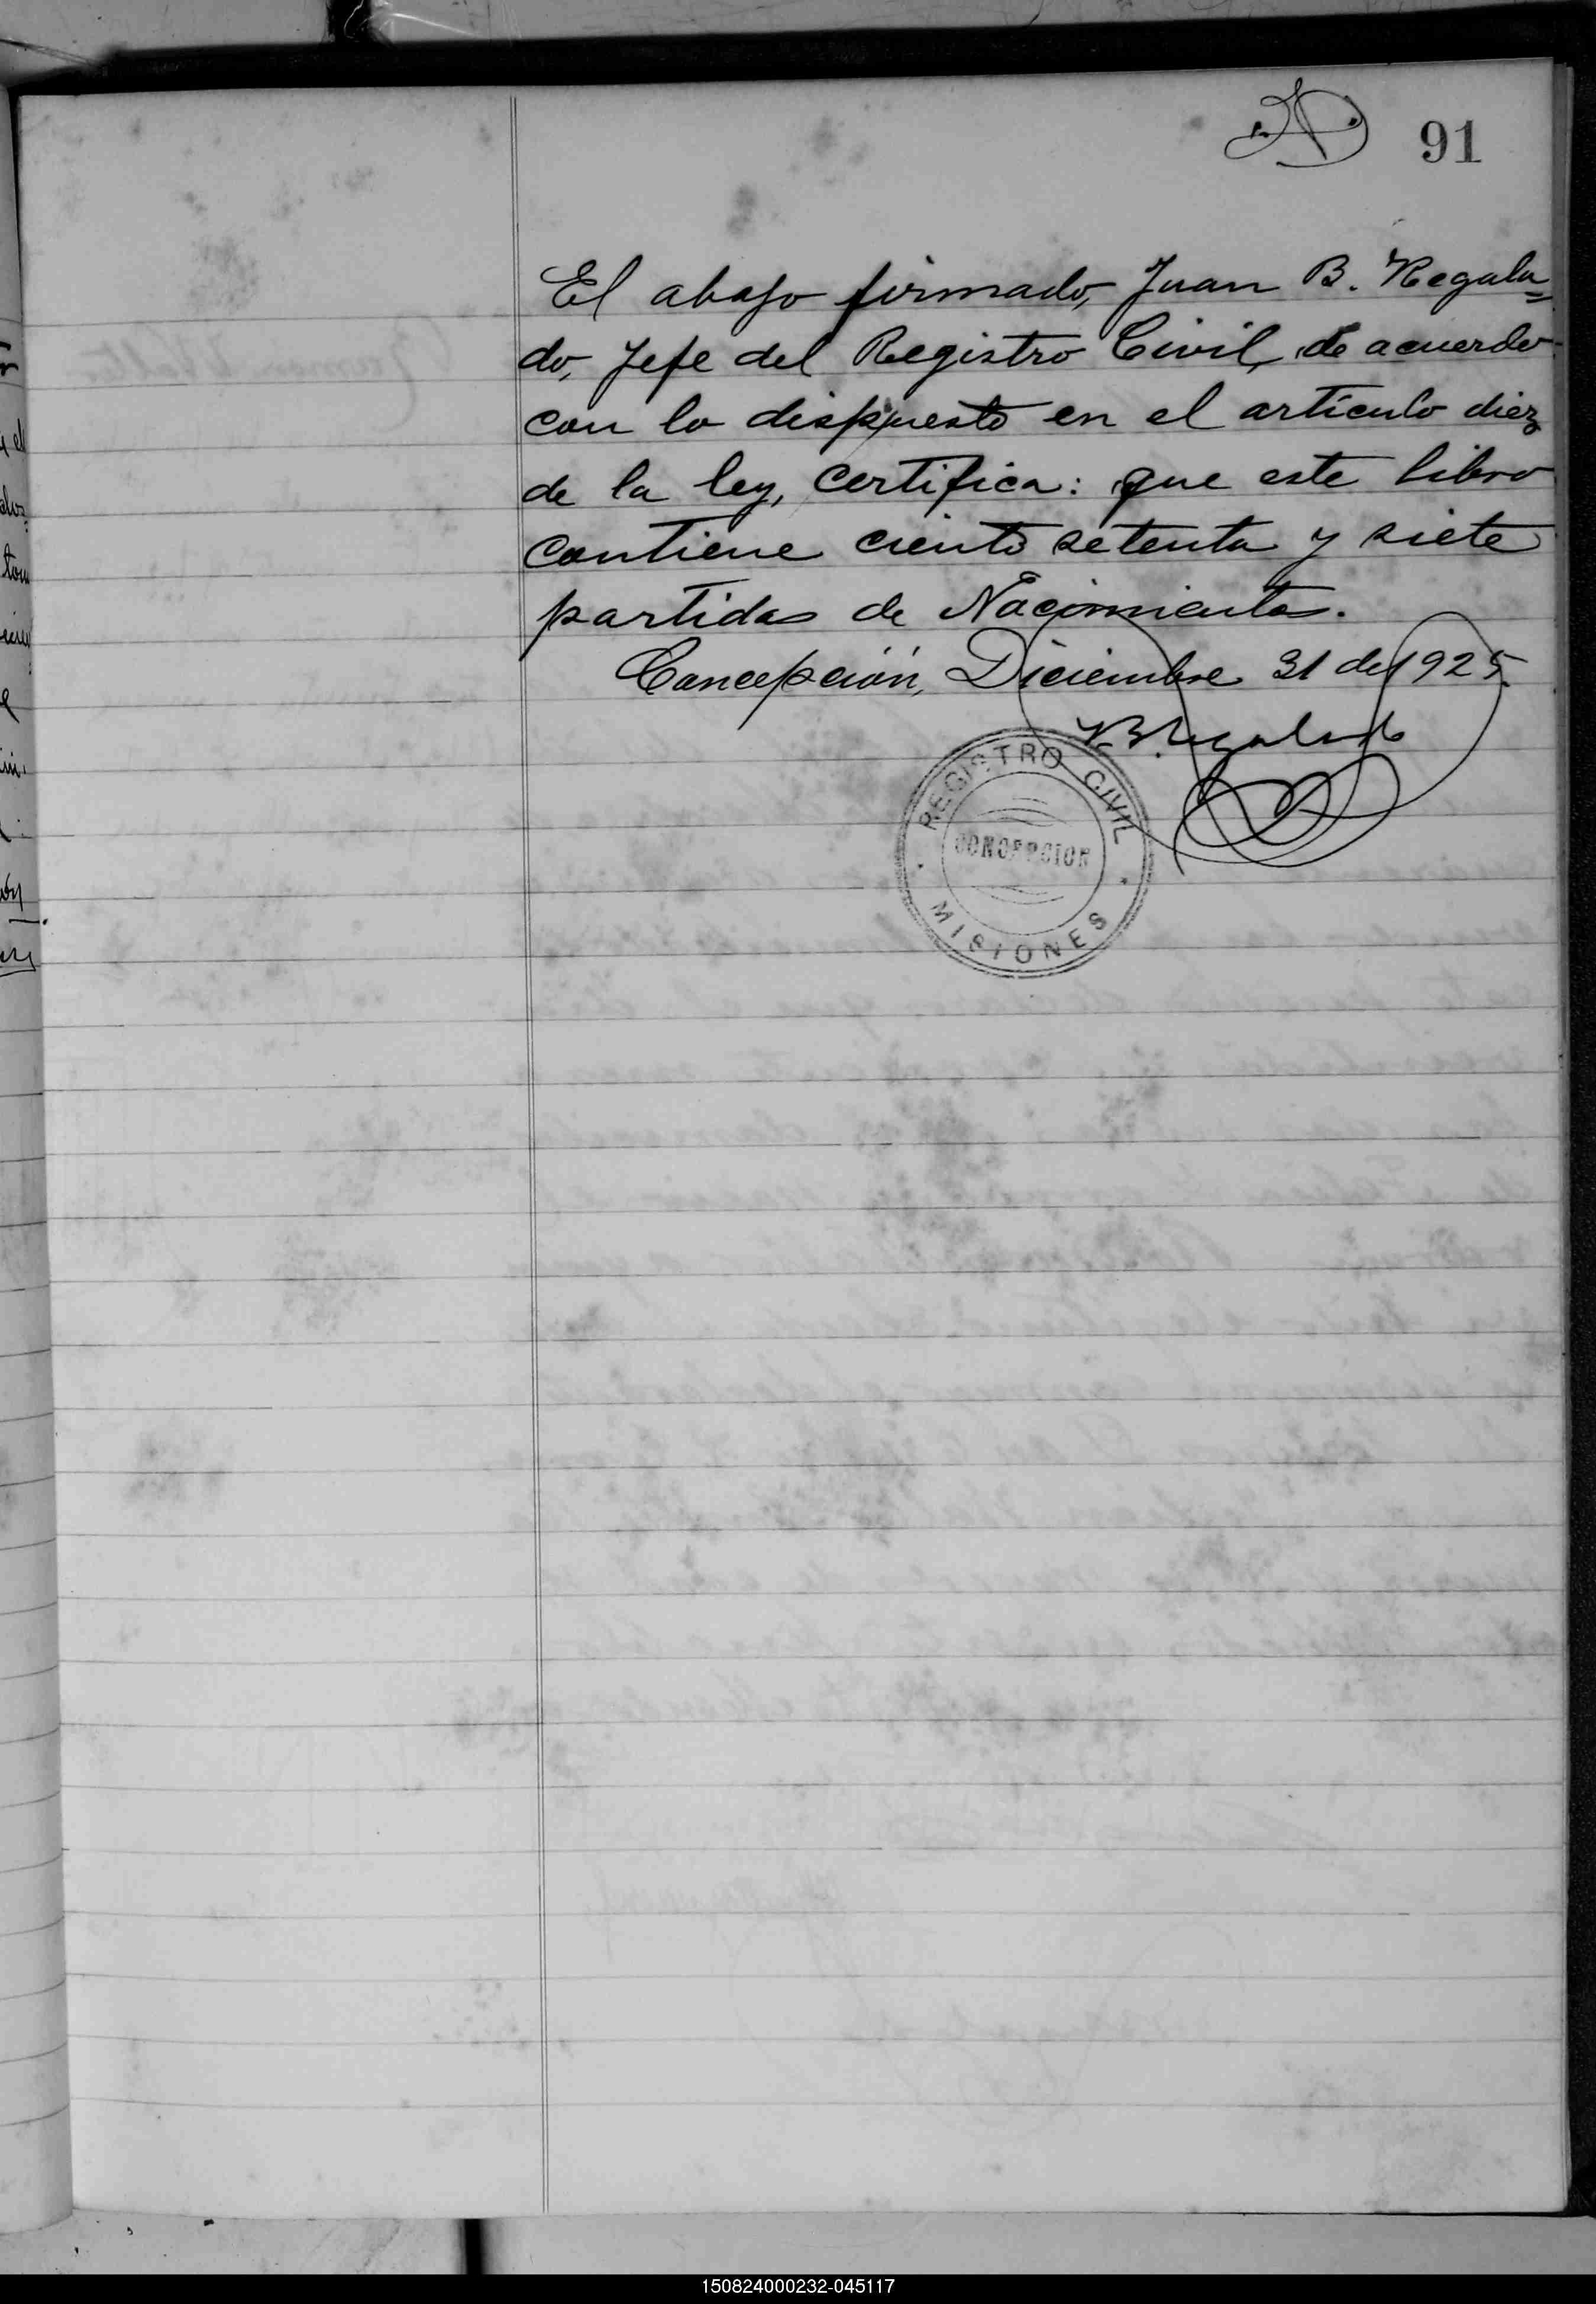 91
El abajo firmado, Juan B. Regala=
do, Jefe del Registro Civil, de acuerdo
con lo dispuesto en el artículo diez
de la ley, certifica: que este libro
contiene ciento setenta y siete
partidas de Nacimientos.
Concepción, Diciembre 31 de 1925.
J.B. Regalado
REGISTRO CIVIL
CONCEPCION
MISIONES
150824000232-045117